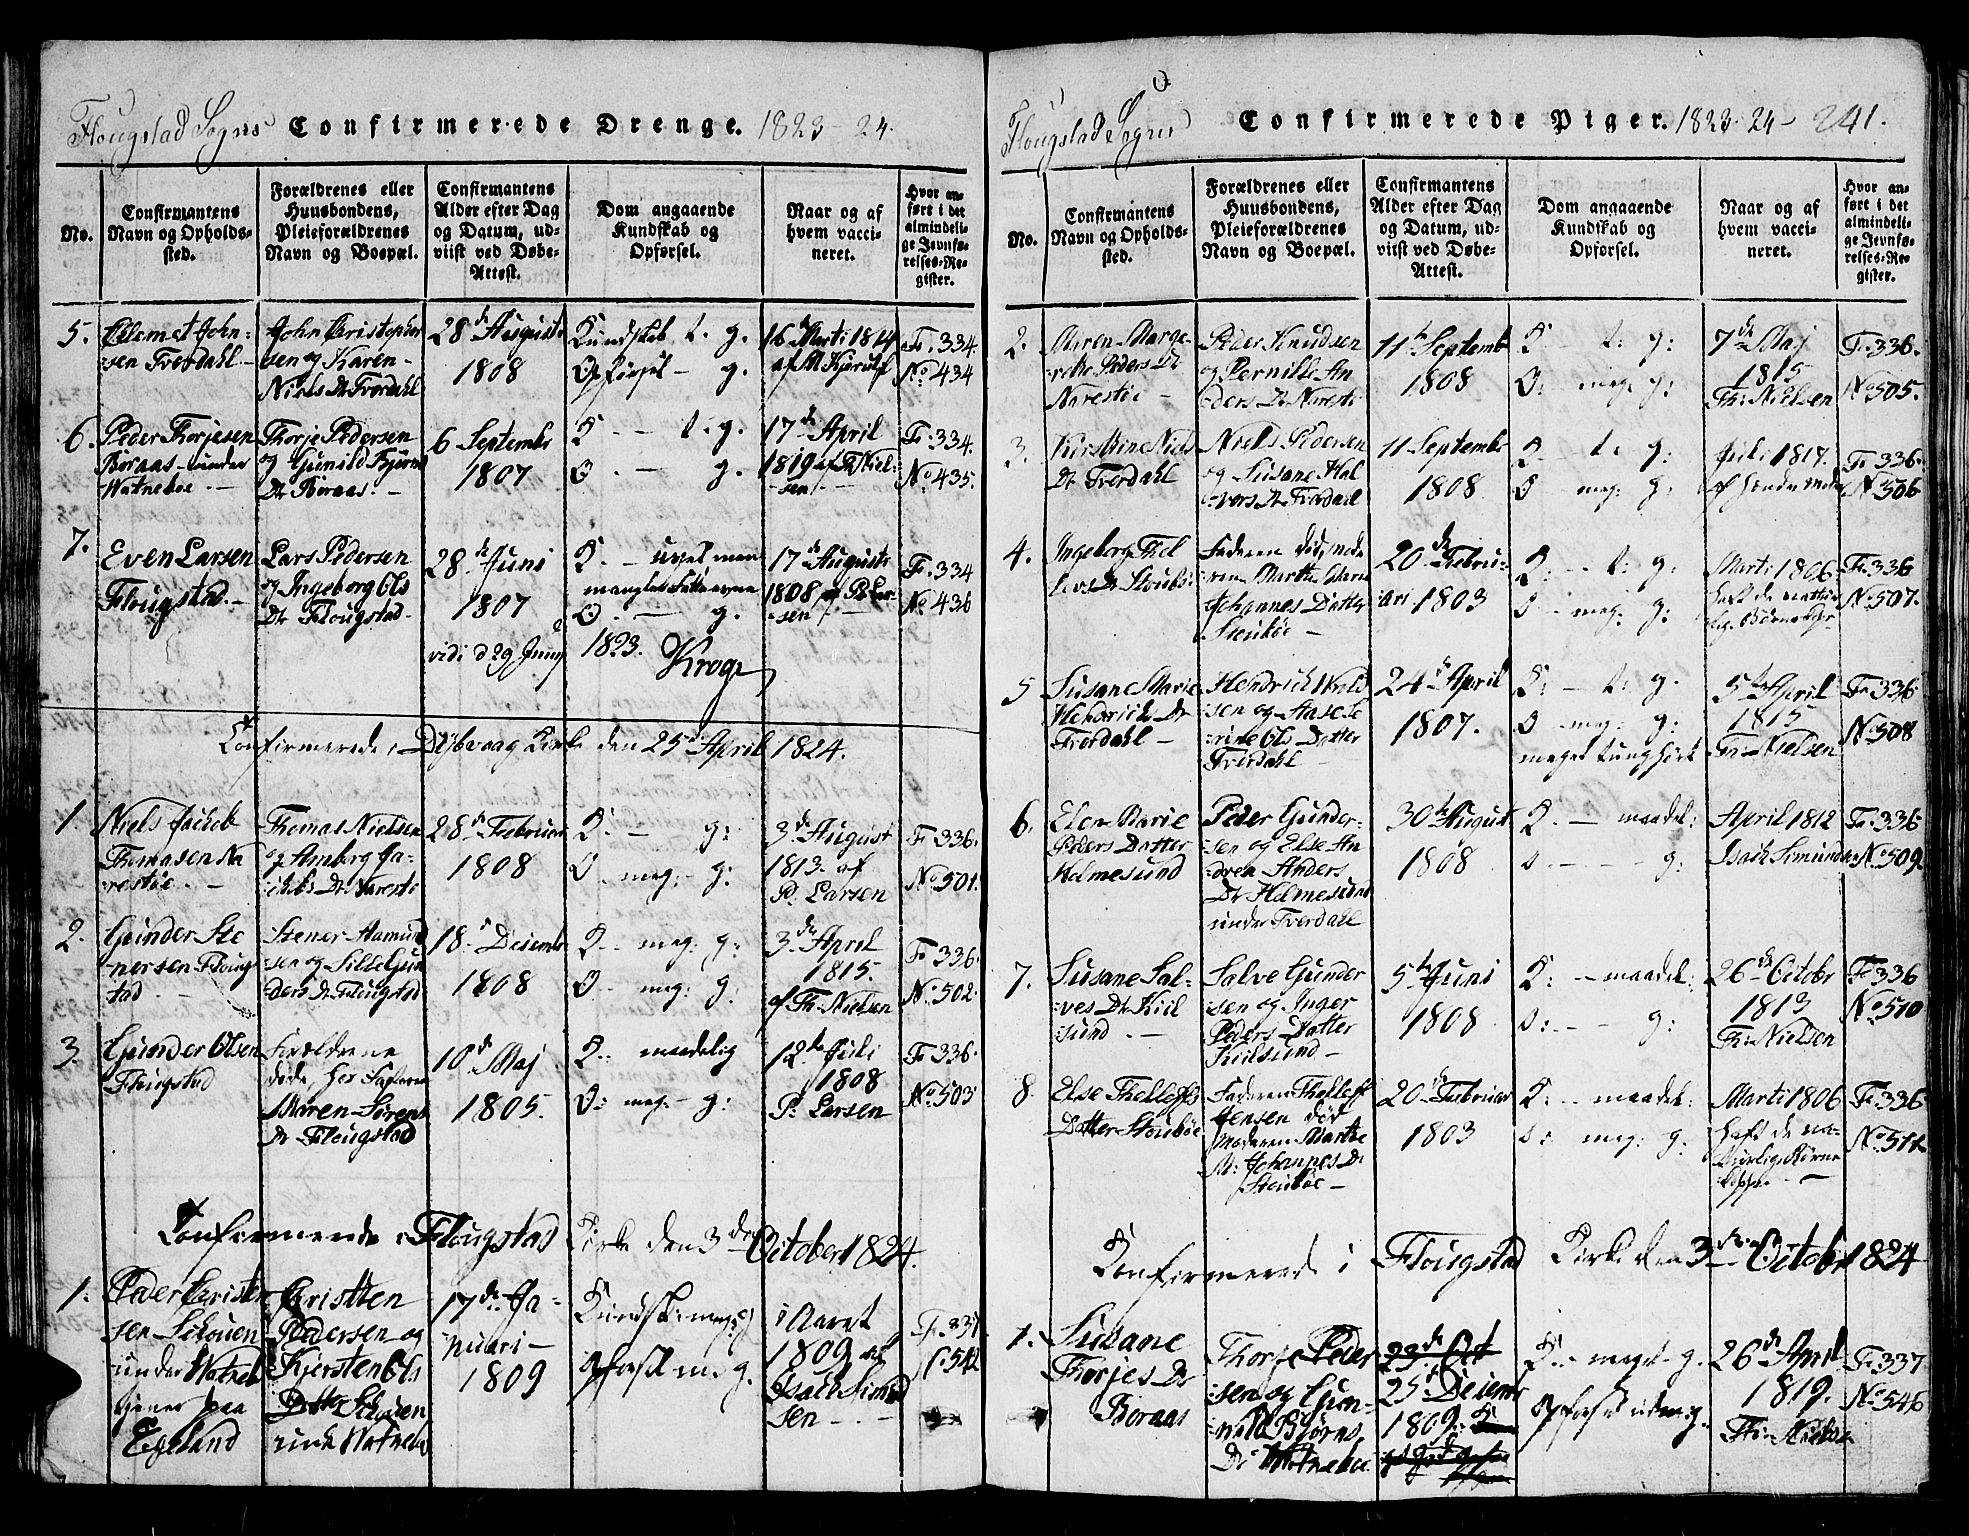 Flougstad Sogns Confirmerede Drenge. 1823-24.
No.
Confirmantens
Navn og Opholds-
sted.
Forældrenes eller
Huusbondens,
Pleieforældrenes
Navn og Boepæl.
Confirmantens
Alder efter Dag
og Datum, ud-
viist ved Døbe-
Attest.
Dom angaaende
Kundskab og
Opførsel.
Naar og af
hvem vacci-
neret.
Hvor an-
ført i det
almindeli-
ge Jevnfø-
relses-Re-
gister.
5.
Clemet John-
sen Fverdahl
John Cristopher
sen og Karen
Niels Dr Fverdahl
28d August
1808
Kundskab t. g.
Opførsel - g.
16d Marti 1814
af M Kjerulf
F. 334.
No 434
6.
Peder Thorjesen
Boraas under
Watneboe
Thorje Pedersen
og Gunild Bjørns
Dr Boraas.
6 Septembr
1807
K - t. g.
O. - g.
17de April
1819 af Fr Niel-
sen
F. 334.
No 435.
7.
Even Larsen
Flougstad.
Lars Pedersen
og Ingeborg Ols
Dr Flougstad
28de Juni
1807
K. -
O. - g.
17de August
1808 af P. Lar-
sen
F. 334
No 436
vidi d 29 Juny 1823. Krog
Confirmerede i Dybvaag Kirke den 25d April 1824.
1
Niels Jacob
Thomasen Na
restøe
Thomas Nielsen
og Amberg Ja-
cobs Dr Narestø
28d Februar
1808
K. - g:
O. meg: g:
3d August
1813. af
P. Larsen
F. 336.
No 501.
2.
Gunder Ste
nersen Floug-
stad
Stener Aamund
sen og Sille Gun
ders Dr Flougstad
18d Decembr
1808
K. - meg: g:
O - meg: g:
3de April
1815.
af Fr. Nielsen
F. 336.
No. 502.
3.
Gunder Olsen
Flougstad
Forældrene
døde, hos
Maren Sørens
Dr Flougstad
10d Maj
1805.
K: maadelig
O: meg: g:
12te Juli
1808
P. Larsen
F. 336.
No. 503
Confirmerede i Flougstad Kirke den 3die October 1824.
1.
Peder Cristen
sen Schouen
under Watneb
tjener paa
Egeland
Cristten
Pedersen og
Kjersten Ols
Datter Schouen
under Watneb
17de Ja-
nuari
1809
Kundsk: meg g
Opførsel m. g.
i Aaret
1809 af
Isach Simond
sen
F. 337
No. 542
Flougstad Sogns Confirmerede Piger. 1823-24 241.
No.
Confirmantens
Navn og Opholds-
sted.
Forældrenes eller
Huusbondens,
Pleieforældrenes
Navn og Boepæl.
Confirmantens
Alder efter Dag
og Datum, ud-
viist ved Døbe-
Attest.
Dom angaaende
Kundskab og
Opførsel.
Naar og af
hvem vacci-
neret.
Hvor an-
ført i det
almindeli-
ge Jevnfø-
relses-Re-
gister.
2.
Maren Marge-
rethe Peders Dr
Narestøe
Peder Knudsen
og Pernille An
ders Dr Narestø
11te Septembr
1808
K - t: g:
O: meg: g:
7de Maj
1815
Fr: Nielsen
F. 336.
No 505.
3.
Kirstine Niels
Dr Fverdahl
Niels Pedersen
og Susane Hal
vors Dr Fverdahl
11 Septembr
1808
K - t: g:
O - meg: g:
Juli 1817.
F. 336.
No 506
4.
Ingeborg Thel
lefs Dr Stoubøe
Faderen død, mode
ren Marthe Marie
Johannes Datter
Stoubøe
20de Febru-
ari 1803
K: - t: g:
O - meg: g:
Marti 1806
haft de natur
lig. Børnekop.
F. 336
No 507.
5
Susane Marie
Hendrichs Dr
Fverdahl
Hendrich Wold
sen og Aase Ca
rine Ols Datter
Fverdahl
24d April
1807.
K: - t: g.
O - meg: g:
meget tunghørt
5te April
1815
Fr Nielsen
F. 336
No 508
6.
Elen Marie
Peders Datter
Holmesund
Peder Gunder-
sen og Else An
drea Anders
Dr Holmesund
under Fverdahl
30te August
1808
K. - maadel:
O - g:
April 1812
Isach Simundsen
F. 336
No 509.
7.
Susane Sal-
ves Dr Kiil
sund
Salve Gunder
sen og Inger
Peders Datter
Kiilsund
5te Juni
1808
K: - maadel:
O: - g:
26de Octobr
1813
Fr. Nielsen
F. 336
No 510
8.
Else Thellefs
Datter Stoubøe
Faderen Thellef
Jensen død
Moderen Marthe
M: Johannes Dr
Stoubøe
20de Februar
1803
K: - maadel:
O: meg: g.
Marti 1806
haft de na-
turlige Børne
kopper
F. 336
No. 511
Confirmerede i Flougstad Kirke den 3die Octobr 1824
1.
Susane
Thorjes Dr
Boraas
Thorje Peder
sen og Gun-
nild Bjørns
Dr Watneboe
23de Oct
25d Decembr
1809.
K: meget g.
Opførsel
26de April
1819.
Fr. Nielsen
F. 337
No. 546